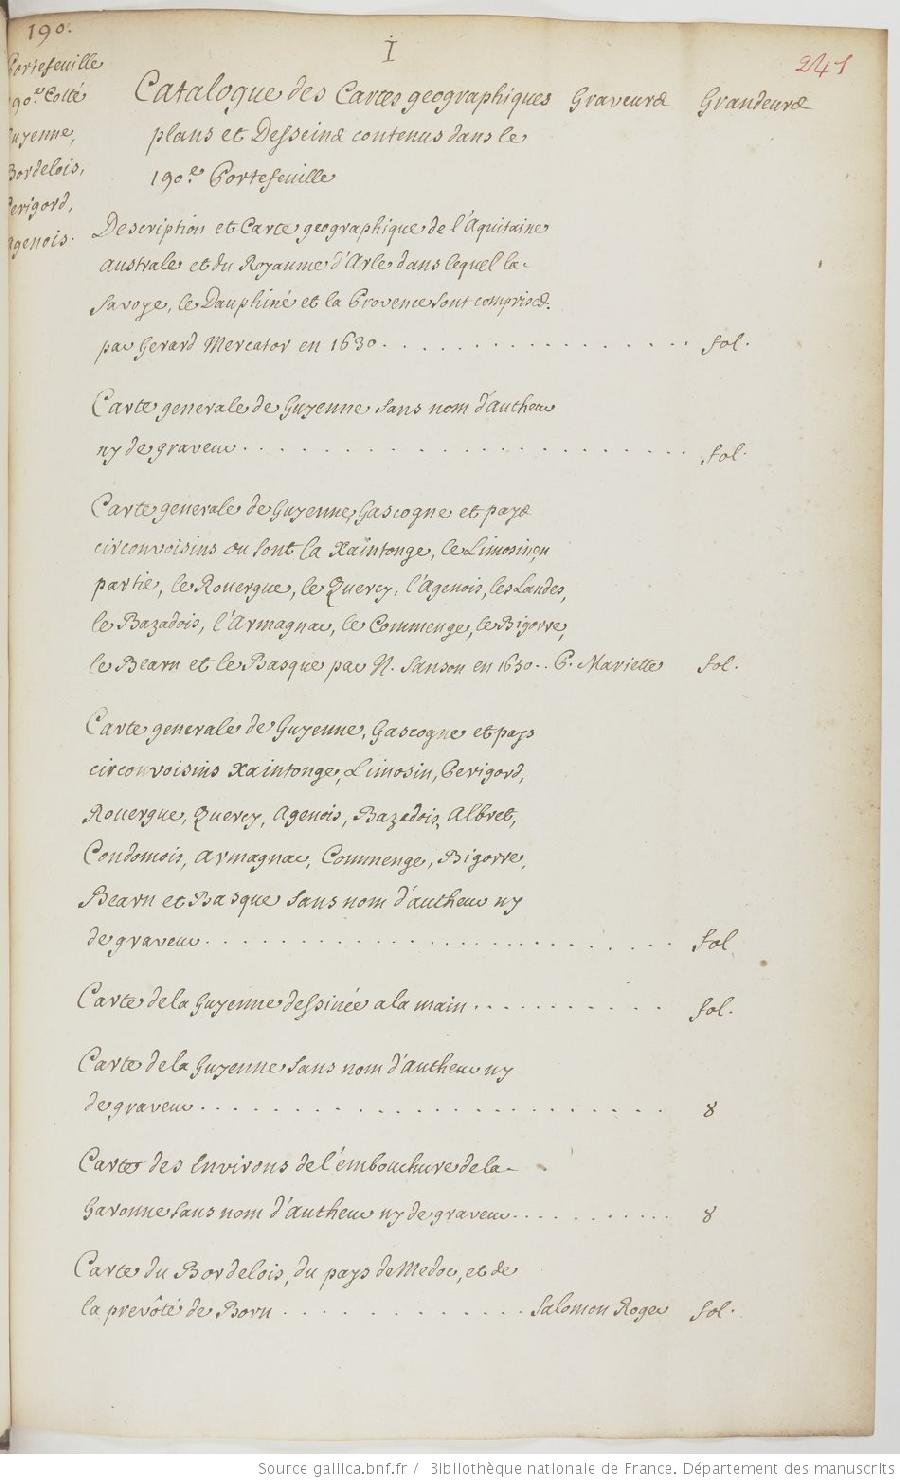 190.
I
241
Portefeuille
190.e Cotté
Guyenne,
Bordelois,
Perigord,
Agenois.
Catalogue des Cartes geographiques Graveurs Grandeurs
plans et Desseins contenus dans le
190.e Portefeuille
Description et Carte geographique de l'Aquitaine
australe et du Royaume d'Arle dans lequel la
Savoye, le Dauphiné et la Provence sont compris.
par Gerard Mercator en 1630. . . . . . . . . . . . . . . . . fol.
Carte generale de Guyenne sans nom d'autheur
ny de graveur. . . . . . . . . . . . . . . . . . . . . . fol.
Carte generale de Guyenne, Gascogne et pays
circonvoisins ou sont la Xaintonge, le Limosin en
partie, le Rouergue, le Quercy, l'Agenois, les Landes,
le Bazadois, l'Armagnac, le Commenge, le Bigorre,
le Bearn et le Basque par N. Sanson en 1650. . P. Mariette fol.
Carte generale de Guyenne, Gascogne et pays
circonvoisins Xaintonge, Limosin, Perigord,
Rouergue, Quercy, Agenois, Bazadois, Albret,
Condomois, Armagnac, Commenge, Bigorre,
Bearn et Basque sans nom d'autheur ny
de graveur. . . . . . . . . . . . . . . . . . . . . . . . . fol
Carte de la Guyenne dessinée a la main. . . . . . . . . . fol.
Carte de la Guyenne sans nom d'autheur ny
de graveur. . . . . . . . . . . . . . . . . . . . . . . . 8
Carte des Environs de l'embouchure de la
Garonne sans nom d'autheur ny de graveur. . . . . . . . . . 8
Carte du Bordelois, du pays de Medoc, et de
la prevôté de Born . . . . . . . . . . . . . Salomon Roger fol.
Source gallica.bnf.fr / Bibliothèque nationale de France. Département des manuscrits